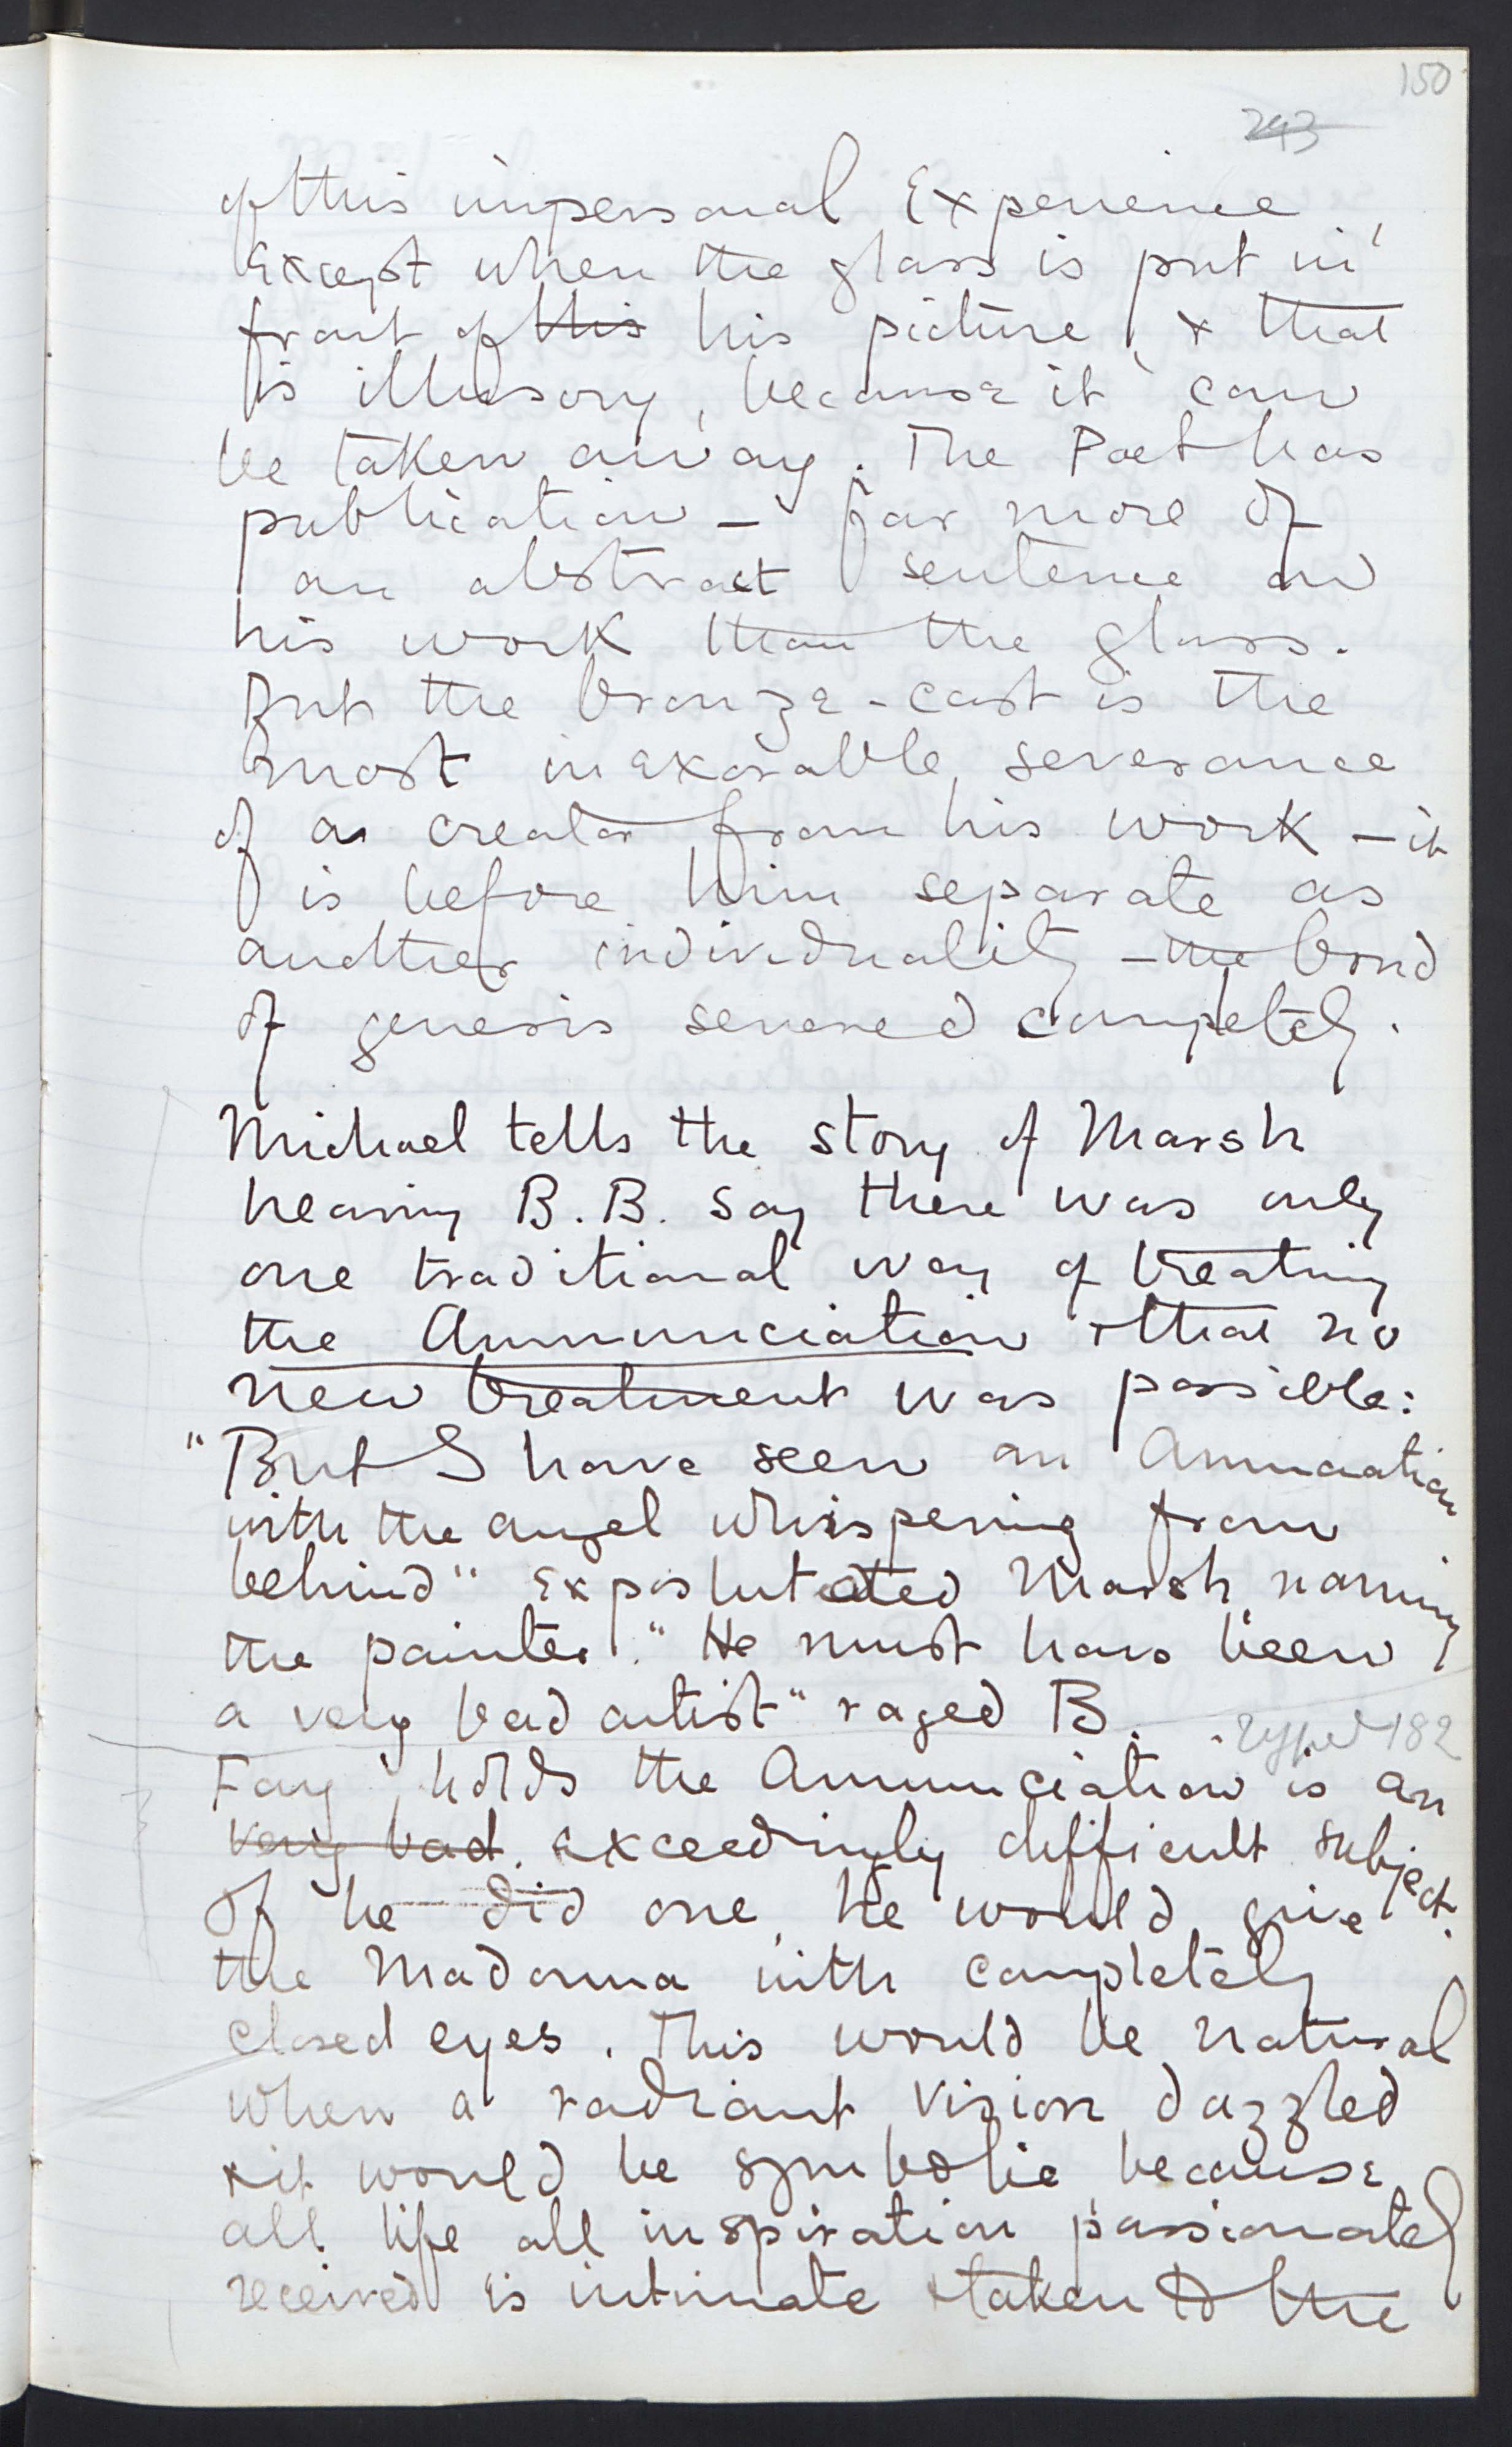 150
243
of this impersonal Experience,
Except when the glass is put in
front of this his picture, & that
is illusory, because it can
be taken away. The Poet has
publication — far more of
an abstract sentence on
his work than the glass.
But the bronze-cast is the
most inexorable severance
of a creator from his work — it
is before him separate as
another individuality — the bond
of genesis severed completely.
Michael tells the story of Marsh
hearing B.B. say there was only
one traditional way of treating
the Annunciation & that no
new treatment was possible:
"But I have seen an Annunciation
with the angel whispering from
behind" expostulated Marsh naming
the painter. "He must have been
a very bad artist" raged B.
typed 182
Fay holds the Annunciation is an
very bad exceedingly difficult subject.
If he did one, he would give
the Madonna with completely
closed eyes. This would be natural
when a radiant vision dazzled
& it would be symbolic because
all life all inspiration passionately
received is intimate & taken to the